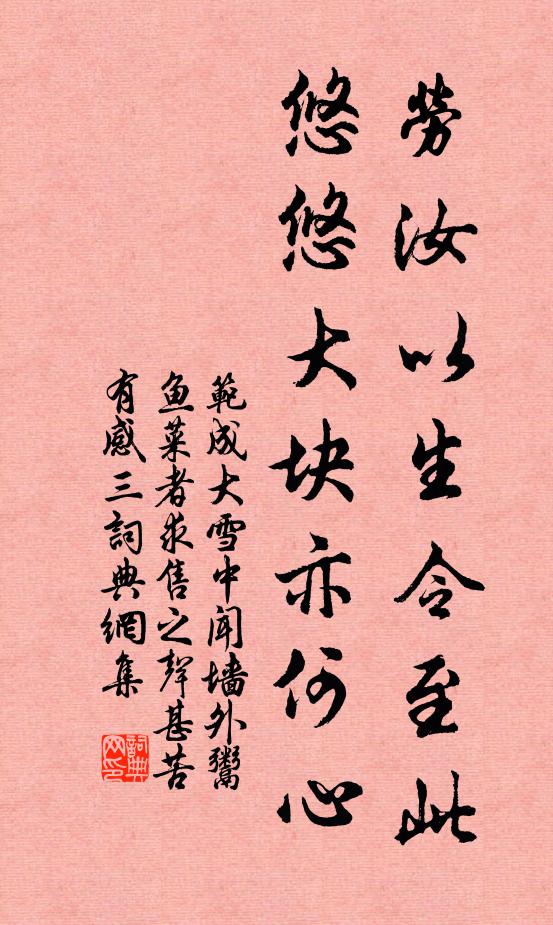 勞汝以生令至此
悠悠大块亦何心
範成大雪中闻墙外鬻
鱼菜者求售之聲甚苦
有感三詞典網集
詞典网印